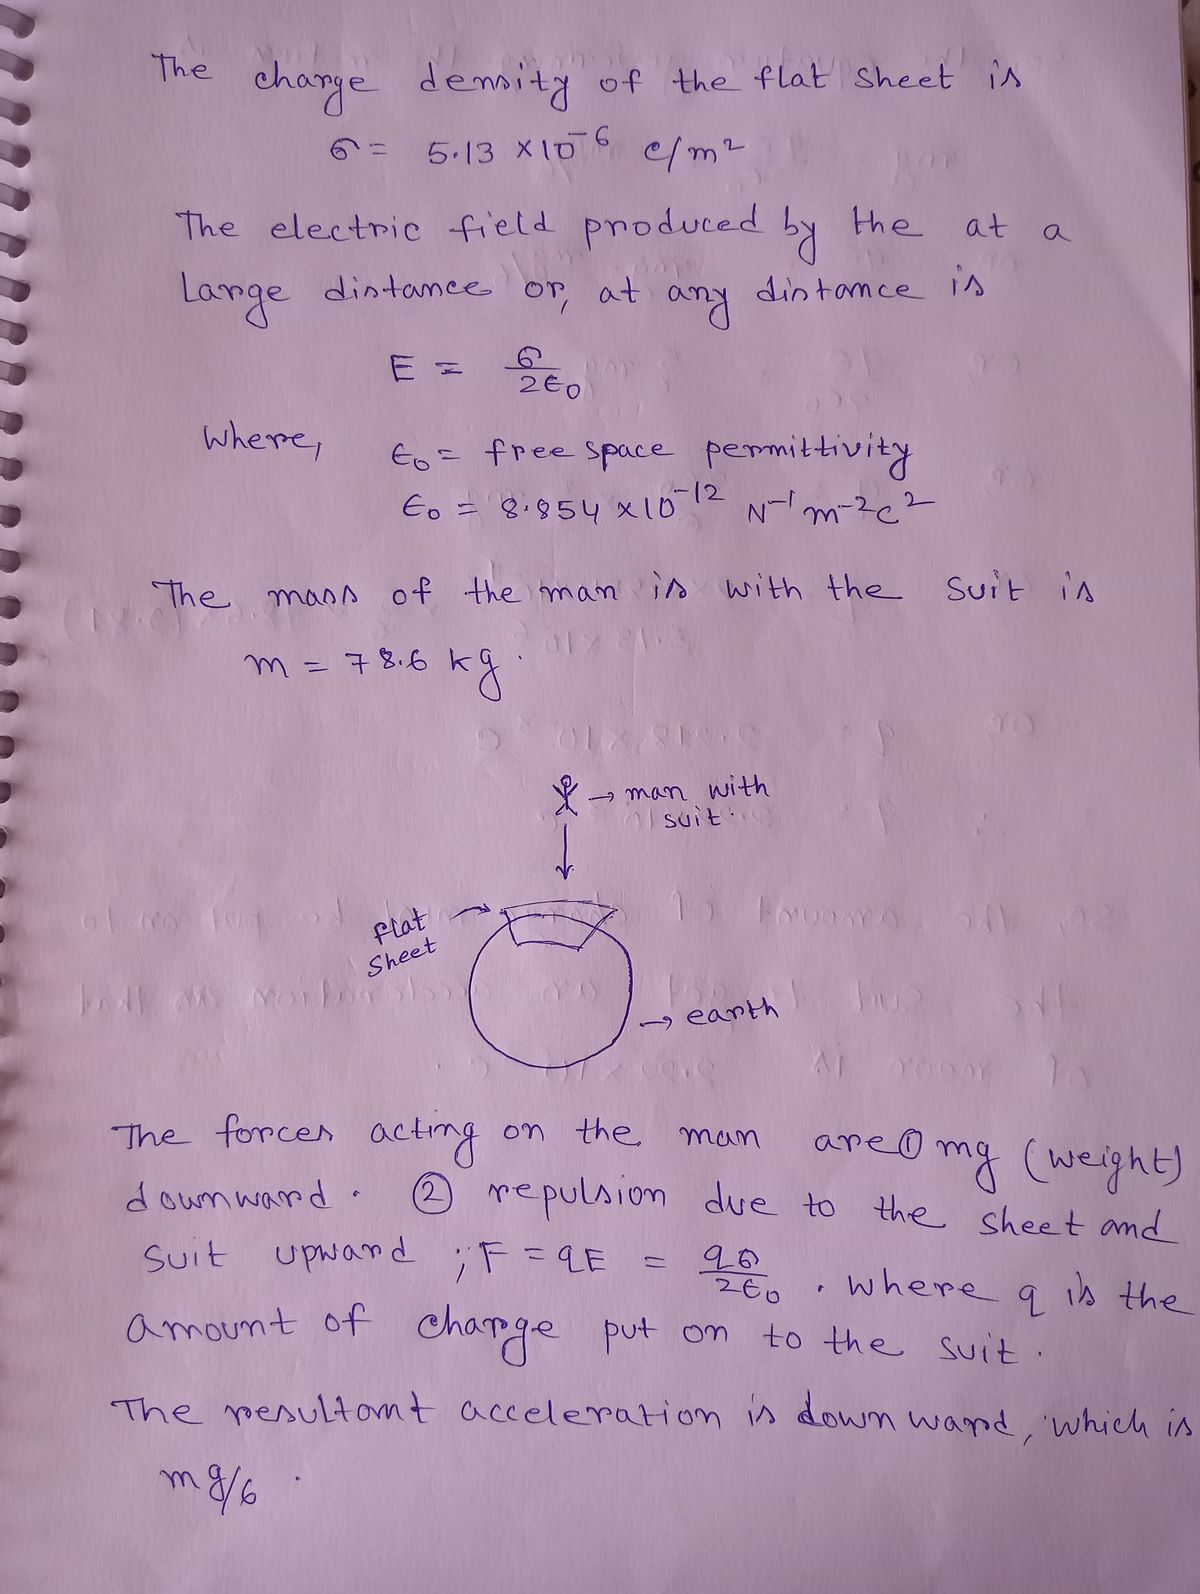 The charge density of the flat sheet is
σ = 5.13 × 10⁻⁶ c/m²
The electric field produced by the at a
Large distance or, at any distance is
E = σ/2ϵ₀
Where,
ϵ₀ = free space permittivity
ϵ₀ = 8.854 × 10⁻¹² N⁻¹ m⁻² c²
The mass of the man is with the suit is
m = 78.6 kg.
→ man with
suit.
flat
sheet
→ earth
The forces acting on the man are ① mg (weight)
downward. ② repulsion due to the sheet and
suit upward ; F = qE = qσ/2ϵ₀ . where q is the
amount of charge put on to the suit.
The resultant acceleration is downward, which is
mg/6 .